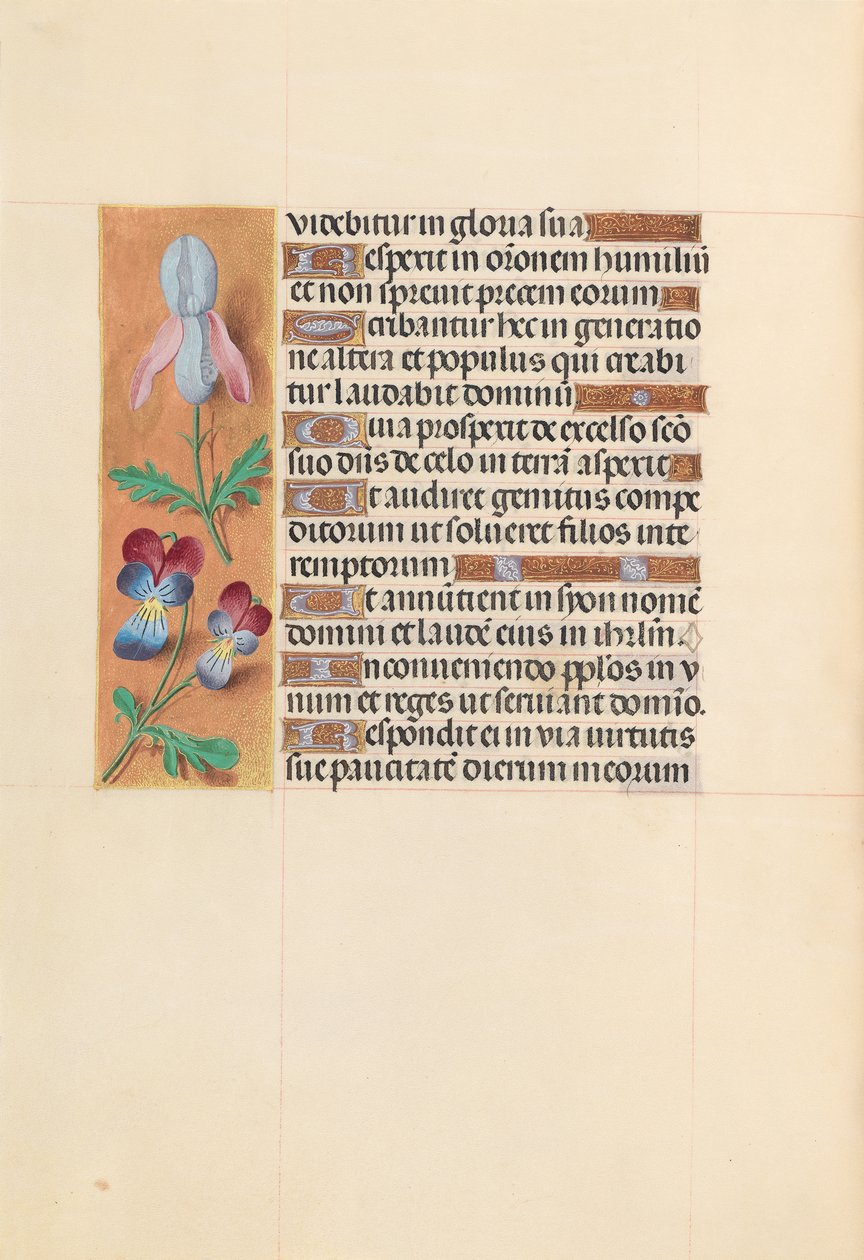 videbitur in gloria sua
Respexit in or̄onem humiliū
et non sprevit precem eorum
Scribantur hec in generatio
ne altera et populus qui creabi
tur laudabit dominū
Quia prospexit de excelso scō
suo dn̄s de celo in terrā aspexit
Et audiret gemitus compe
ditorum ut solveret filios inte
remptorum
Et annūtient in syon nomē
domini et laudē eius in ihrlm̄.
In conveniendo pplōs in v
num et reges ut serviant domīo.
Respondit ei in via virtutis
sue paucitatē dierum meorum